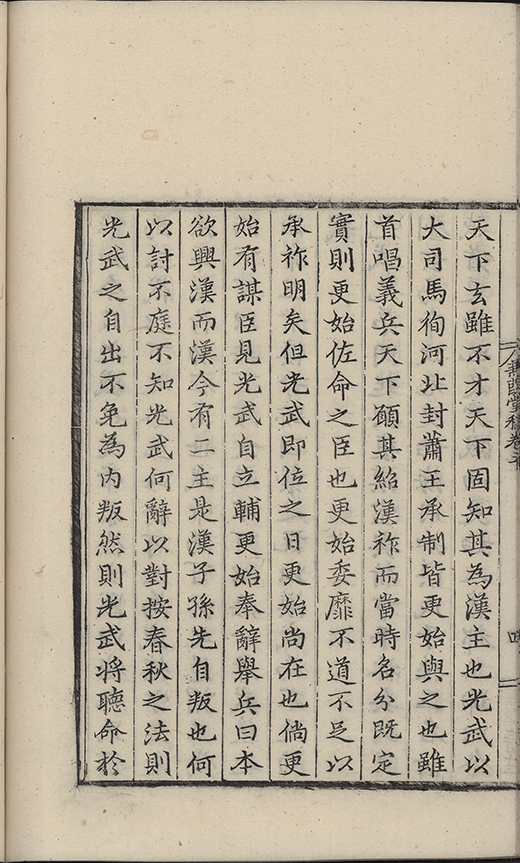 天下玄雖不才天下固知其為漢主也光武以
大司馬徇河北封蕭王承制皆更始與之也雖
首唱義兵天下願其紹漢祚而當時名分既定
實則更始佐命之臣也更始委靡不道不足以
承祚明矣但光武即位之日更始尚在也倘更
始有謀臣見光武自立輔更始奉辭舉兵曰本
欲興漢而漢今有二主是漢子孫先自叛也何
以討不庭不知光武何辭以對按春秋之法則
光武之自出不免為內叛然則光武將聽命於